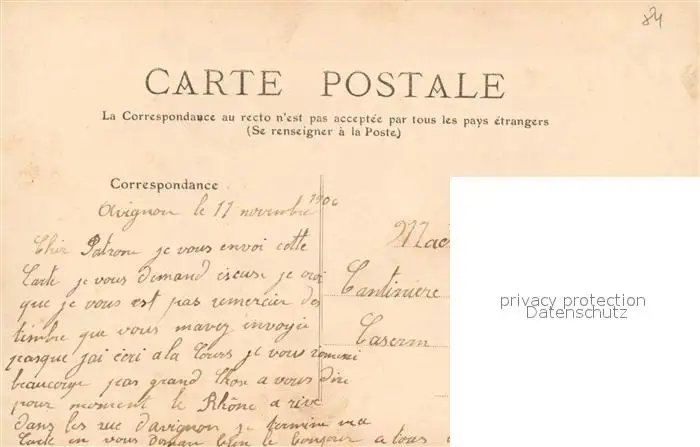 84
CARTE POSTALE
La Correspondance au recto n'est pas acceptée par tous les pays étrangers
(Se renseigner à la Poste)
Correspondance
Avignon le 11 novembre 190
Cher Patrone je vous envoi cette
Carte je vous demand escuse je croi
que je vous est pas remercier des
timbre que vous mavez envoyér
pasque jai écri a la Cours je vous remerci
beaucorp pas grand Chon a vous dire
pour moment le Rhône a rive
dans les rue davignon je termine ma
Carte en vous donan bien le bonjour a tous
Mad
Cantiniere
Caserm
privacy protection
Datenschutz